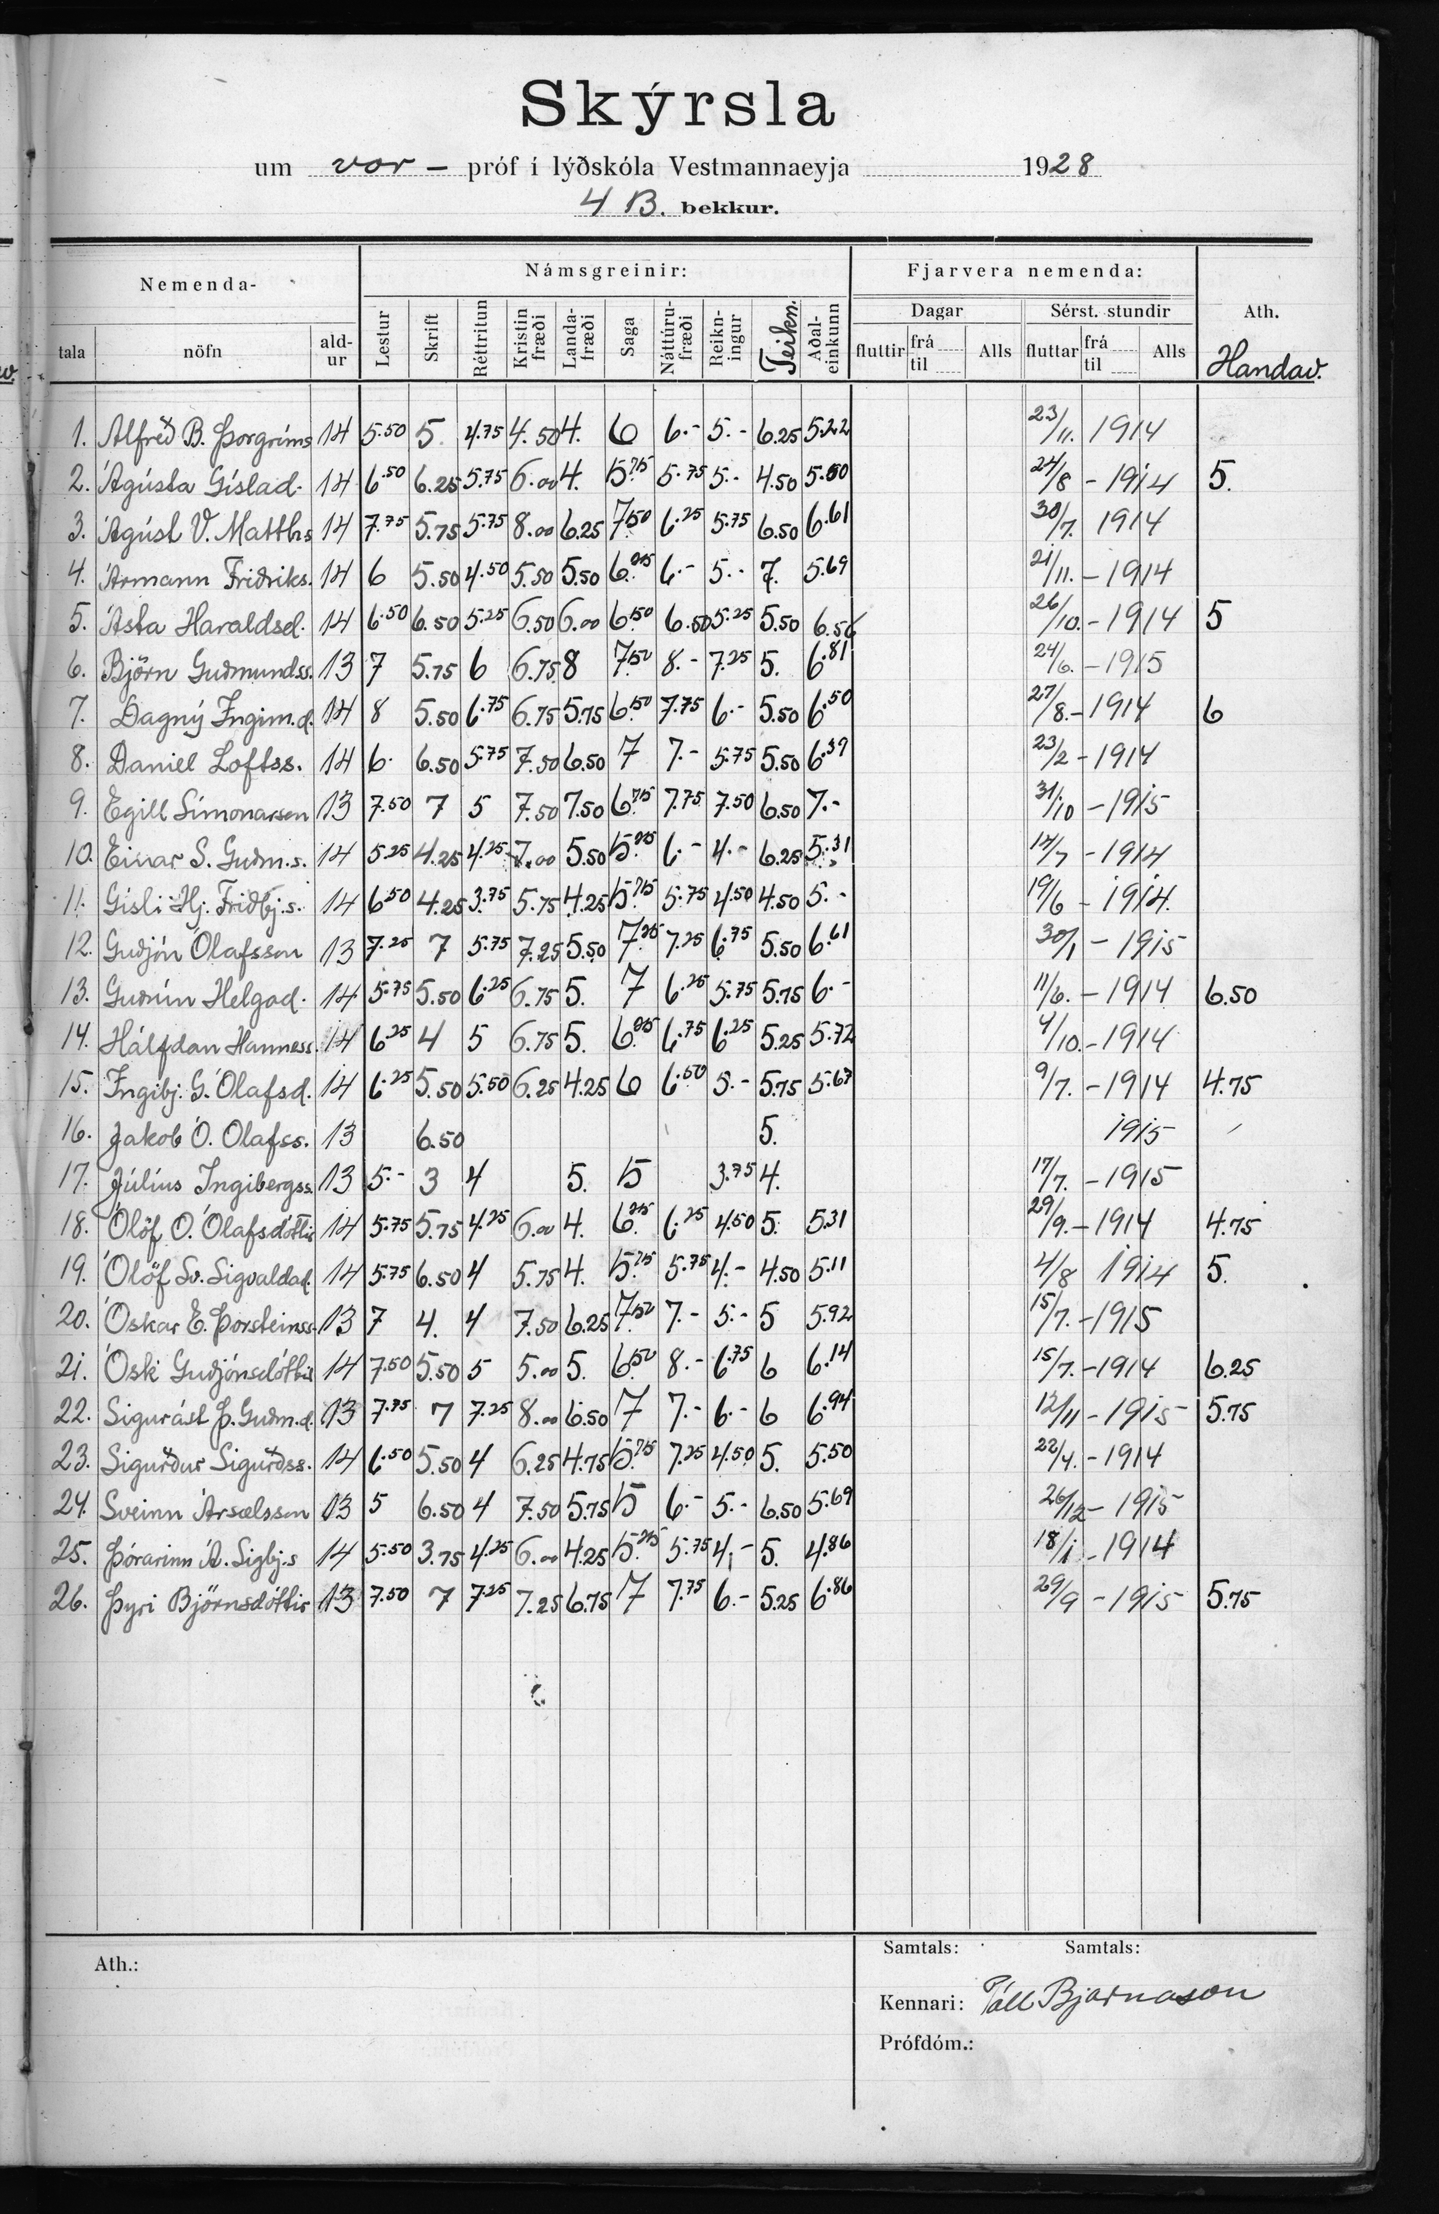 Skýrsla
um vor - próf í lýðskóla Vestmannaeyja 1928
4 B. bekkur.
Nemenda- Námsgreinir: Fjarvera nemenda: Ath.
Dagar Sérst. stundir
tala nöfn ald-ur Lestur Skrift Réttritun Kristin fræði Landa-fræði Saga Náttúru-fræði Reikn-ingur Teikn. Aðal-einkunn fluttir frá til Alls fluttar frá til Alls Handav.
1. Alfreð B. Þorgríms 14 5.50 5 4.75 4.50 4. 6 6.- 5.- 6.25 5.22 23/11. 1914
2. Ágústa Gíslad. 14 6.50 6.25 5.75 6.00 4. 5.75 5.75 5.- 4.50 5.50 24/8 - 1914 5.
3. Ágúst V. Matth.s 14 7.75 5.75 5.75 8.00 6.25 7.50 6.25 5.75 6.50 6.61 30/7. 1914
4. Ármann Friðriks. 14 6 5.50 4.50 5.50 5.50 6.25 6.- 5.- 7. 5.69 21/11. - 1914
5. Ásta Haraldsd. 14 6.50 6.50 5.25 6.50 6.00 6.50 6.50 5.25 5.50 6.56 26/10. - 1914 5
6. Björn Guðmundss. 13 7 5.75 6 6.75 8 7.50 8.- 7.25 5. 6.81 24/6. - 1915
7. Dagný Ingim.d. 14 8 5.50 6.75 6.75 5.75 6.50 7.75 6.- 5.50 6.50 27/8. - 1914 6
8. Daníel Loftss. 14 6. 6.50 5.75 7.50 6.50 7 7.- 5.75 5.50 6.39 23/2 - 1914
9. Egill Símonarson 13 7.50 7 5 7.50 7.50 6.75 7.75 7.50 6.50 7.- 31/10 - 1915
10. Einar S. Guðm.s. 14 5.25 4.25 4.25 7.00 5.50 5.25 6.- 4.- 6.25 5.31 14/7 - 1914
11. Gísli Hj. Friðbj.s. 14 6.50 4.25 3.75 5.75 4.25 5.75 5.75 4.50 4.50 5.- 19/6 - 1914.
12. Guðjón Ólafsson 13 7.25 7 5.75 7.25 5.50 7.25 7.25 6.75 5.50 6.61 30/1 - 1915
13. Guðrún Helgad. 14 5.75 5.50 6.25 6.75 5. 7 6.25 5.75 5.75 6.- 11/6. - 1914 6.50
14. Hálfdan Hanness. 14 6.25 4 5 6.75 5. 6.25 6.75 6.25 5.25 5.72 4/10. - 1914
15. Ingibj. G. Ólafsd. 14 6.25 5.50 5.50 6.25 4.25 6 6.50 5.- 5.75 5.67 9/7. - 1914 4.75
16. Jakob Ó. Ólafss. 13 6.50 5. 1915
17. Júlíus Ingibergss. 13 5.- 3 4 5. 5 3.75 4. 17/7. - 1915
18. Ólöf O. Ólafsdóttir 14 5.75 5.75 4.25 6.00 4. 6.25 6.25 4.50 5. 5.31 29/9. - 1914 4.75
19. Ólöf Sv. Sigvaldad. 14 5.75 6.50 4 5.75 4. 5.75 5.75 4.- 4.50 5.11 4/8 1914 5.
20. Óskar E. Þorsteinss. 13 7 4. 4 7.50 6.25 7.50 7.- 5.- 5 5.92 15/7. - 1915
21. Ósk Guðjónsdóttir 14 7.50 5.50 5 5.00 5. 6.50 8.- 6.75 6 6.14 15/7. - 1914 6.25
22. Sigurást Þ. Guðm.d. 13 7.75 7 7.25 8.00 6.50 7 7.- 6.- 6 6.94 12/11 - 1915 5.75
23. Sigurður Sigurðss. 14 6.50 5.50 4 6.25 4.75 5.75 7.25 4.50 5. 5.50 22/4. - 1914
24. Sveinn Ársælsson 13 5 6.50 4 7.50 5.75 5 6.- 5.- 6.50 5.69 26/12 - 1915
25. Þórarinn Á. Sigbj.s 14 5.50 3.75 4.25 6.00 4.25 5.25 5.75 4.- 5. 4.86 18/1 - 1914
26. Þyri Björnsdóttir 13 7.50 7 7.25 7.25 6.75 7 7.75 6.- 5.25 6.86 29/9 - 1915 5.75
Ath.: Samtals: Samtals:
Kennari: Páll Bjarnason
Prófdóm.: